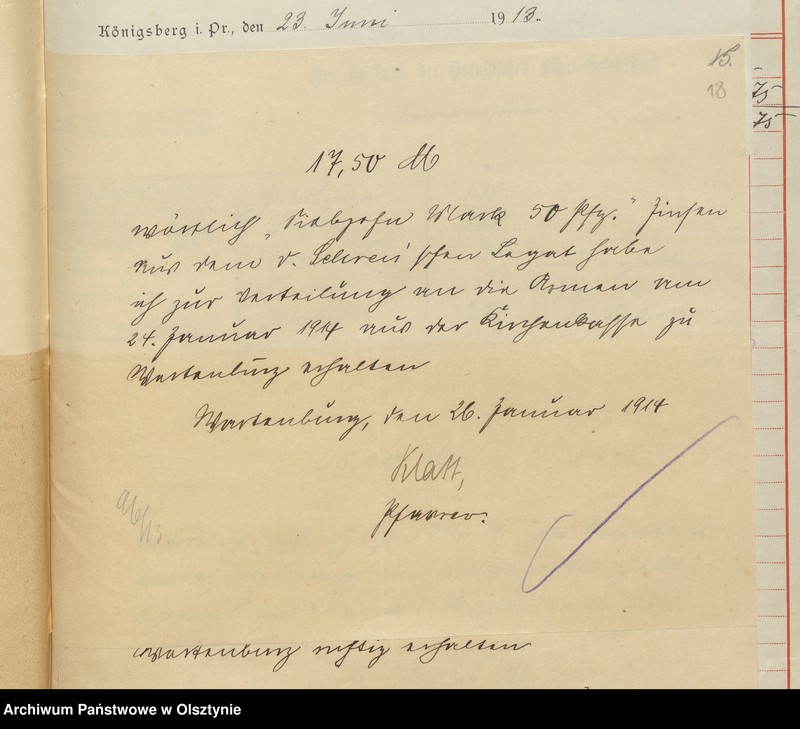 Königsberg i. Pr., den 23. Juni 1913.
15.
18
75
75
17,50 M
wörtlich „Siebzehn Mark 50 Pfg." Zinsen
aus dem v. 'schen Legat habe
ich zur Verteilung an die Armen am
24. Januar 1914 aus der Kirchenkasse zu
Wartenburg erhalten
Wartenburg, den 26. Januar 1914
Klatt,
Pfarrer.
Wartenburg richtig erhalten
Archiwum Państwowe w Olsztynie